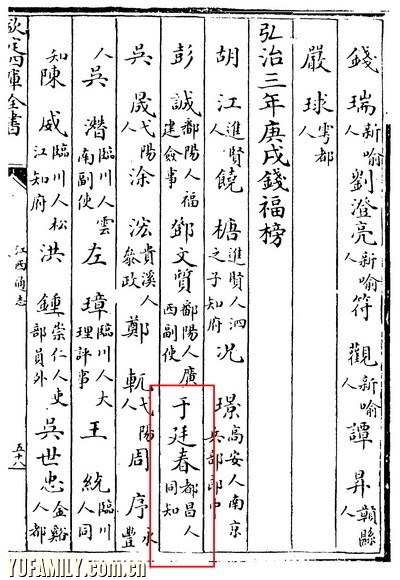 錢瑞新喻人劉澄亮新喻人符觀新喻人譚昇贛縣人
嚴球雩都人
弘治三年庚戌錢福榜
胡江進賢人饒榶進賢人泗之子知府况璟高安人南京兵部郎中
彭誠鄱陽人福建僉事鄧文質鄱陽人廣西副使于廷春都昌人同知
吳晟弋陽人涂浤貴溪人參政鄭軏弋陽人周序永豐
人吳潛臨川人雲南副使左璋臨川人大理評事王統臨川人同
知陳威臨川人松江知府洪鍾崇仁人吏部員外吳世忠金谿人都
欽定四庫全書
江西通志
五十八
YUFAMILY.com.cn